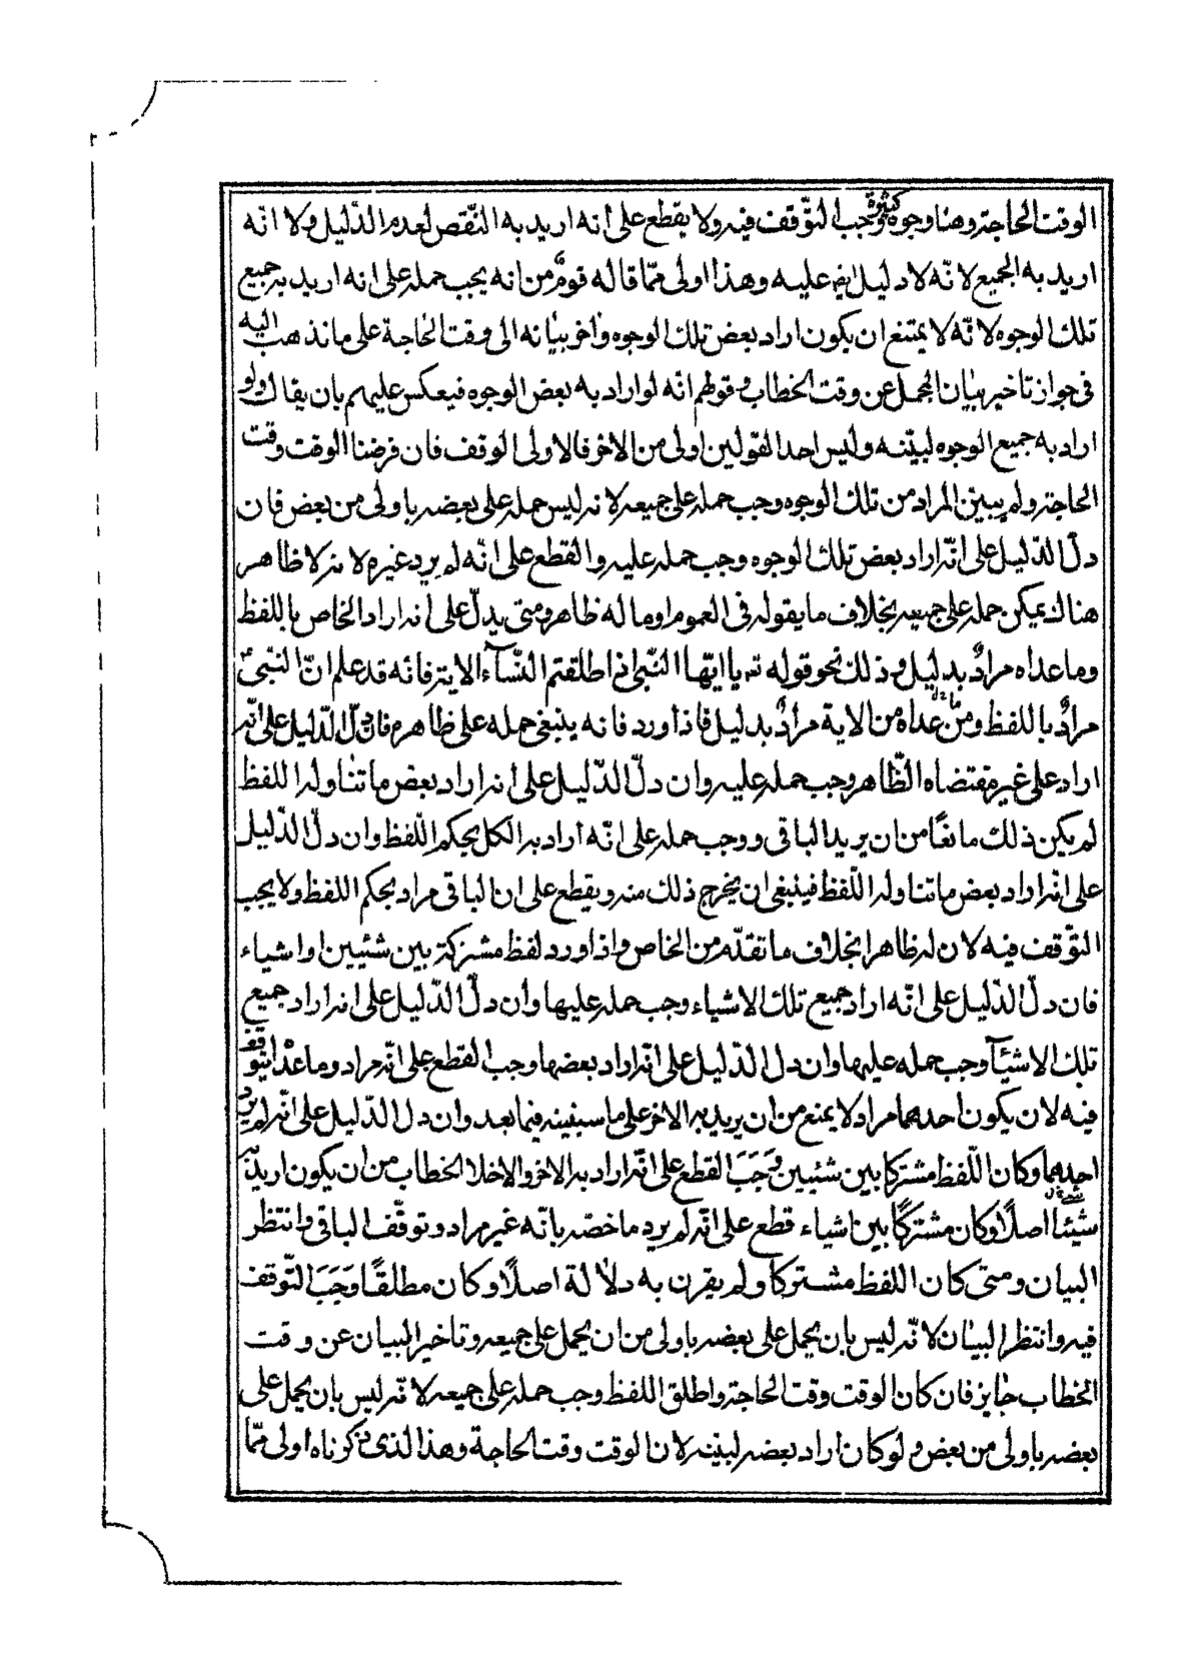 الوقت الحاجة وهنا وجوه كثيرة وجب التّوقف فيه ولا يقطع على انه اريد به النّقص لعدم الدّليل ولا انّه
اريد به الجميع لانّه لا دليل ايض عليه وهذا اولى ممّا قاله قومٌ من انه يجب حمله على انه اريد به جميع
تلك الوجوه لانّه لا يمتنع ان يكون اراد بعض تلك الوجوه واخر بيانه الى وقت الحاجة على ما نذهب اليه
فى جواز تاخير بيان المجمل عن وقت الخطاب وقولهم انّه لو اراد به بعض الوجوه فيعكس عليهم بان يقال ولو
اراد به جميع الوجوه لبيّنه وليس احد القولين اولى من الاخر فالاولى الوقف فان فرضنا الوقت وقت
الحاجة ولم يبين المراد من تلك الوجوه وجب حمله على جميعه لانه ليس حمله على بعضه باولى من بعض فان
دلّ الدّليل على انّه اراد بعض تلك الوجوه وجب حمله عليه والقطع على انّه لم يرد غيره لانه لا ظاهر
هناك يمكن حمله على جميعه بخلاف ما يقوله فى العموم او ما له ظاهر ومتى يدلّ على انه اراد الخاص باللفظ
وما عداه مرادٌ بدليل وذلك نحو قوله تع يا ايّها النّبى اذا طلقتم النّساء الاية فانّه قد علم انّ النبىّ ص
مرادٌ باللفظ ومن عداه من الاية مرادٌ بدليل فاذا ورد فانه ينبغى حمله على ظاهره فان دلّ الدّليل على انّه
اراد على غير مقتضاه الظّاهر وجب حمله عليه وان دلّ الدّليل على انه اراد بعض ما تناوله اللفظ
لم يكن ذلك مانعًا من ان يريد الباقى ووجب حمله على انّه اراد به الكل بحكم اللّفظ وان دلّ الدّليل
على انّه اراد بعض ما تناوله اللّفظ فينبغى ان يخرج ذلك منه ويقطع على ان الباقى مراد بحكم اللفظ ولا يجب
التّوقف فيه لان له ظاهرا بخلاف ما تقدّم من الخاص واذا ورد لفظ مشتركة بين شئيين او اشياء
فان دلّ الدّليل على انّه اراد جميع تلك الاشياء وجب حمله عليها وان دلّ الدّليل على انه اراد جميع
تلك الاشيآ وجب حمله عليها وان دل الدّليل على انّه اراد بعضها وجب القطع على انّه مراد وما عداه يتوقف
فيه لان يكون احدهما مراد لا يمنع من ان يريد به الاخر على ما سنبينه فيما بعد وان دل الدّليل على انّه لم يرد
احدهما وكان اللّفظ مشتركا بين شئيين وَجَبَ القطع على انّه اراد به الاخر والا خلا الخطاب من ان يكون اريد به
شيئا اصلًا وكان مشتركًا بين اشياء قطع على انّه لم يرد ما خصّه بانّه غير مراد وتوقّف الباقى وانتظر
البيان ومتى كان اللفظ مشتركا ولم يقرن به دلالة اصلًا وكان مطلقًا وَجَبَ التّوقف
فيه وانتظر البيان لانّه ليس بان يحمل على بعضه باولى من ان يحمل على جميعه وتاخير البيان عن وقت
الخطاب جايز فان كان الوقت وقت الحاجة واطلق اللفظ وجب حمله على جميعه لانّه ليس بان يحمل على
بعضه باولى من بعض ولو كان اراد بعضه لبيّنه لان الوقت وقت الحاجة وهذا الذى ذكرناه اولى ممّا